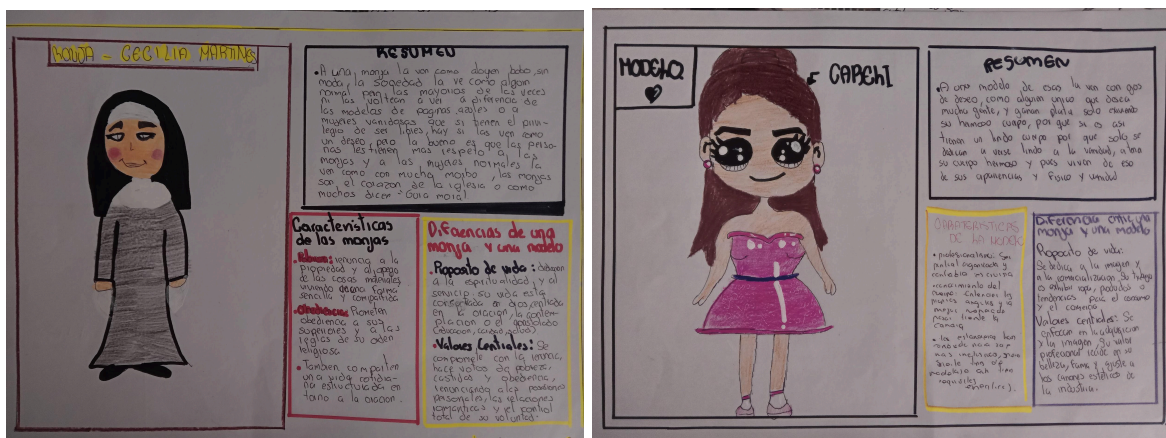 MONJA - CECILIA MARTINES
RESUMEN
• A una monja la ven como alguien bobo, sin
moda, la sociedad la ve como alguien
normal pero las mayorias de las veces
ni las voltean a ver a diferencia de
las modelas de paginas azules o a
mujeres vanidosas que si tienen el privi-
legio de ser libres, hay si las ven como
un deseo, pero lo bueno es que las perso-
nas les tienen mas respeto a las
monjas y a las mujeres normales la
ven como con mucho morbo, las monjas
son el corazon de la iglesia o como
muchos dicen "Guia moral
Caracteristicas
de las monjas
• renuncia a la
propiedad y al apego
de las cosas materiales
viviendo forma
sencilla y compartida
• Obediencia: Prometen
obediencia a sus
superiores y a las
reglas de su orden
religiosa
• Tambien comparten
una vida cotidia-
na estructurada en
torno a la oracion.
Diferencias de una
monja y una modelo
• Proposito de vida:
a la espiritualidad y al
servicio. su vida esta
en dios, centrada
en la oración, la contem-
placion o el apostolado
(educacion, caridad, salud)
• Valores Centrales: Se
compromete con la
hace votos de pobreza,
castidad y obediencia,
renunciando a las
personales, las relaciones
romanticas y el control
total de su voluntad.
MODELO
CAPCHI
RESUMEN
• A una modelo de esas la ven con ojos
de deseo, como alguien unico que desea
mucha gente, y ganan plata solo
su hermoso cuerpo, por que si es asi
tienen un lindo cuerpo por que solo se
dedican a verse lindo a la vanidad, a
su cuerpo hermoso y pues viven de eso
de sus apariencias y fisico y vanidad
CARACTERISTICAS
DE LA MODELO
• profesionalismo: Ser
puntual organizada y
• conocimiento del
cuerpo: conocer los
angulos y la
mejor
frente la
camara
•
mas
Diferencia entre una
monja y una modelo
Proposito de vida:
Se dedica a la imagen y
a la comercialización. Su trabajo
es exhibir ropa, productos o
tendencias para el consumo
y el comercio
Valores centrales: Se
enfocan en la
y la imagen. Su valor
profesional reside en su
belleza, fama y ajuste a
los canones estético de
la industria.